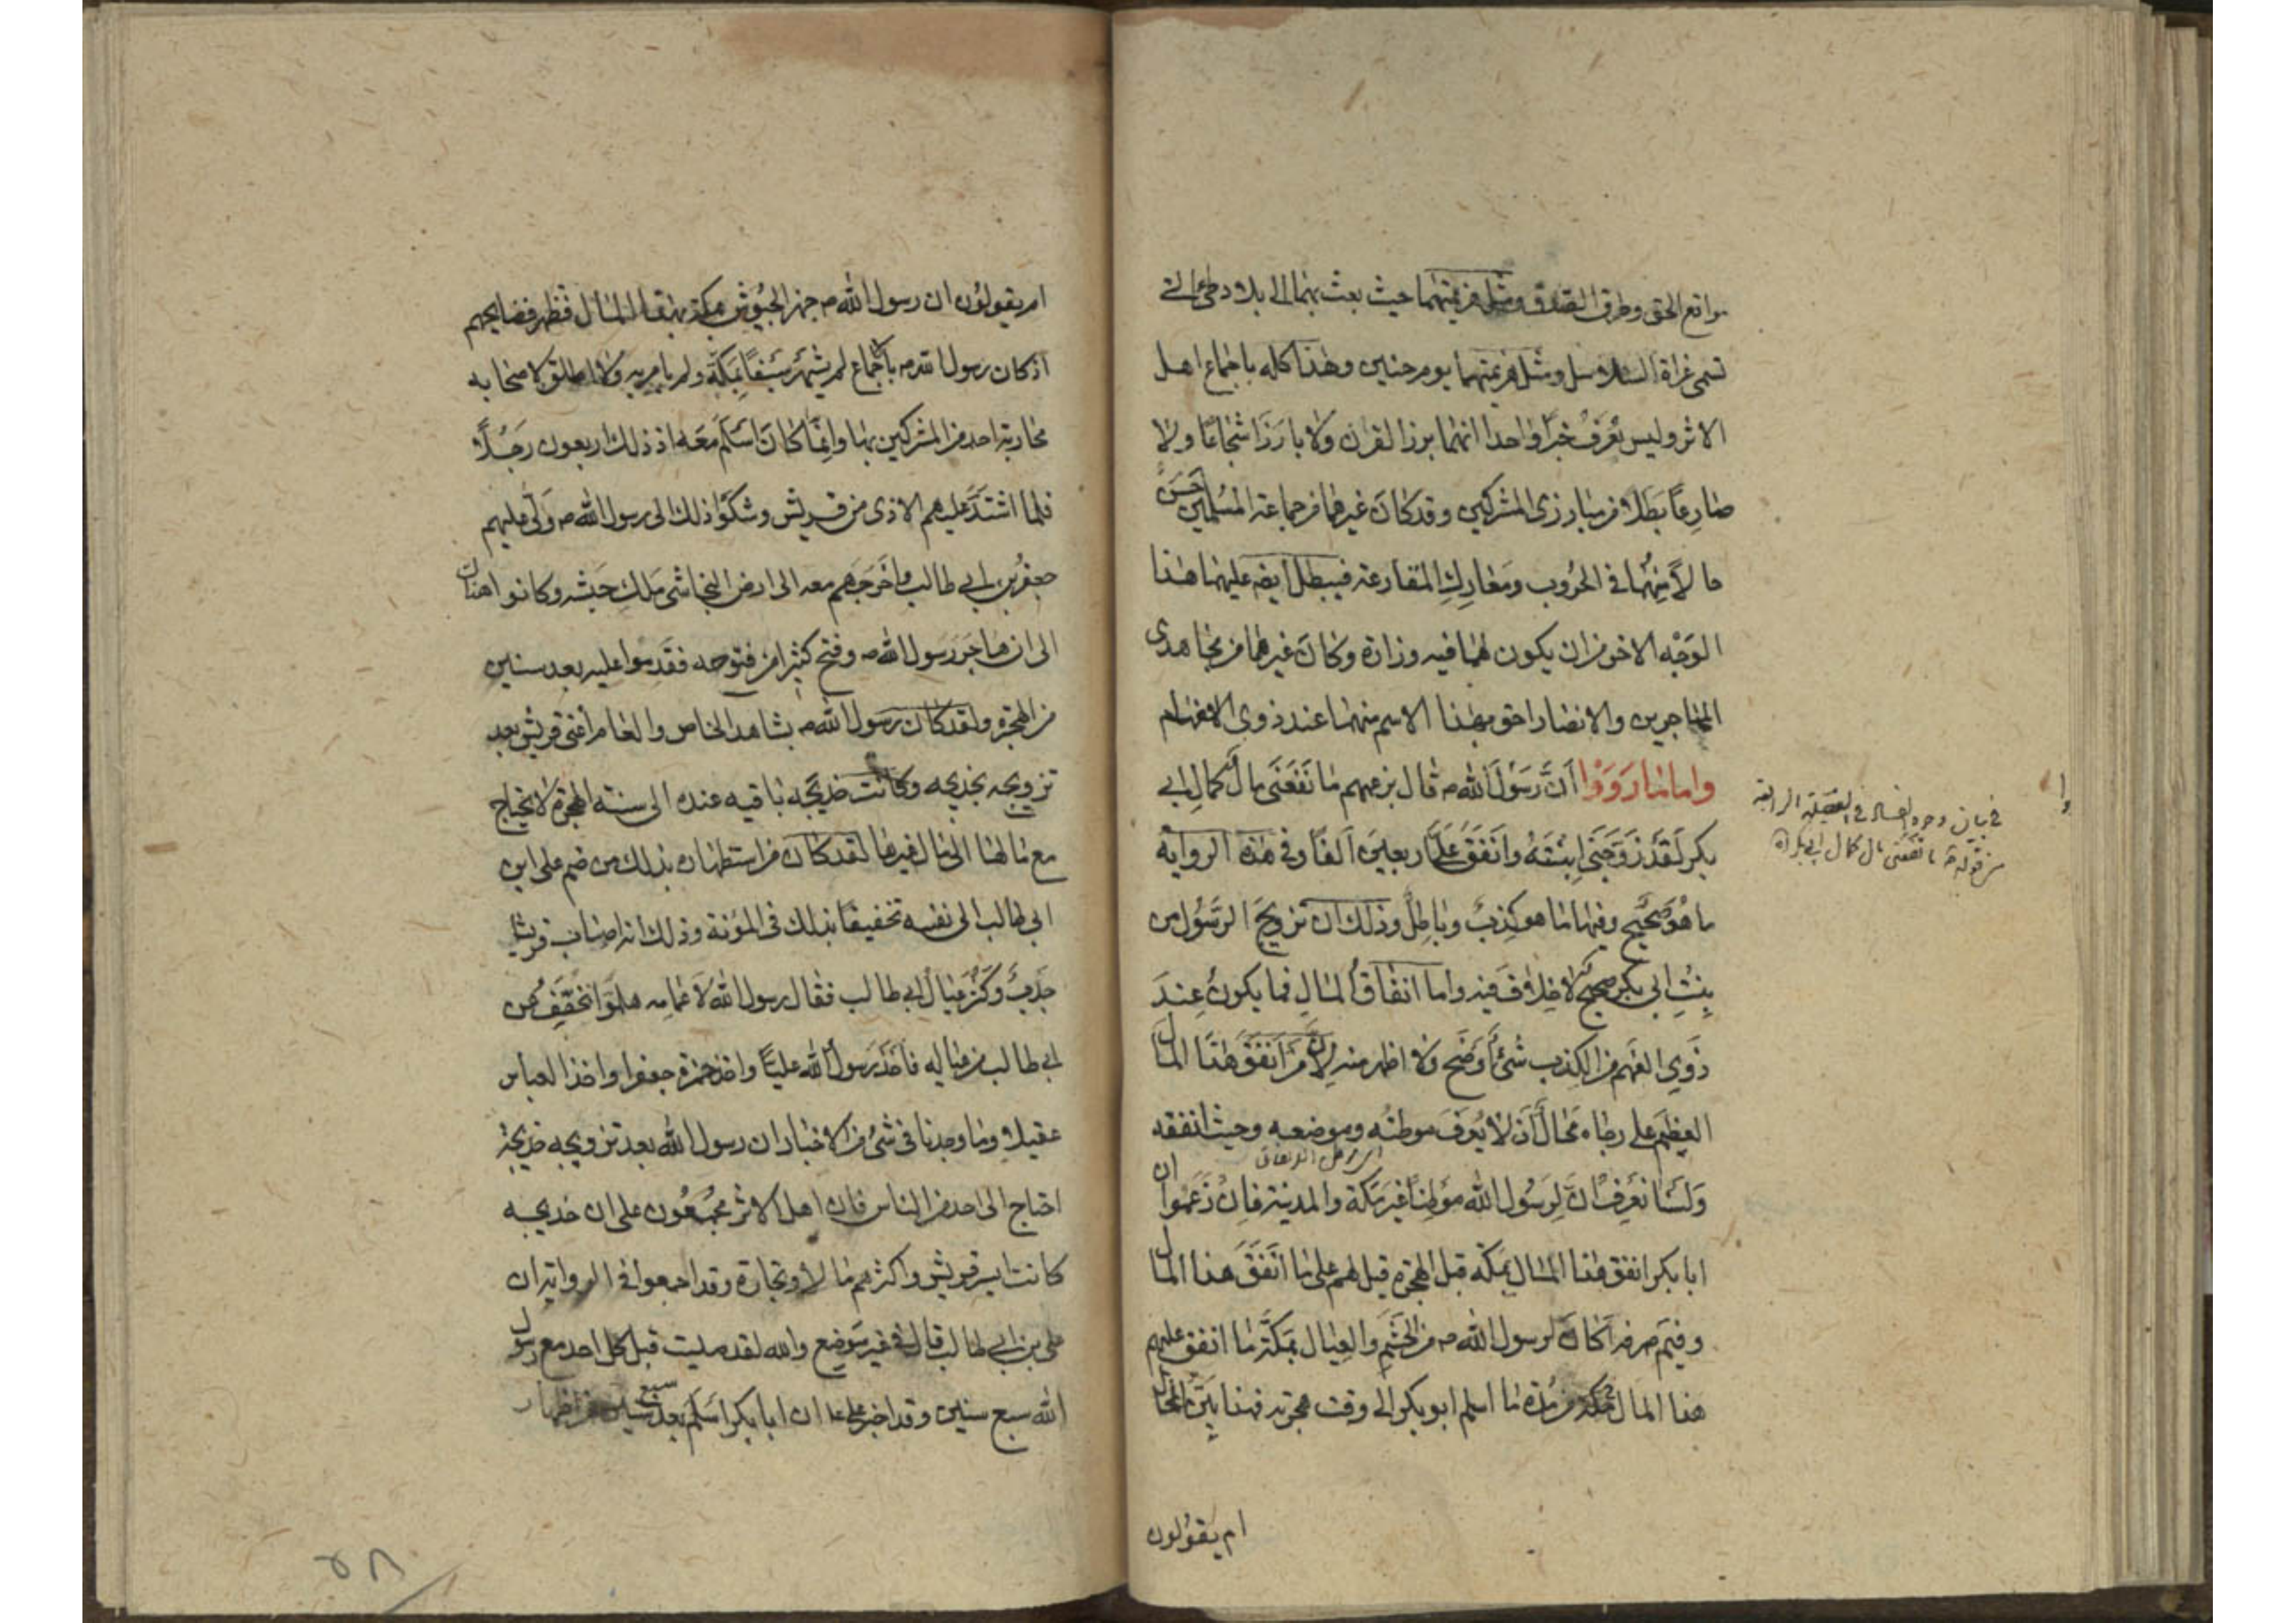 مواقع الحق وطرق الصدق ومثل هزيمتهما حيث بعث بهما الى بلاد طى التى
تسمى غزاة السلاسل ومثل هزيمتهما يوم حنين وهذا كله باجماع اهل
الاثر وليس نعرف خبرا واحدا انهما برزا لقرن ولا بارزا شجاعا ولا
صارعا بطلا من مبارزى المشركين وقد كان غيرهما من جماعة المسلمين احسن
حالا منهما فى الحروب ومعارك المقارعة فيبطل ايضه عليهما هذا
الوجه الاخر من ان يكون لهما فيه وزارة وكان غيرهما من مجاهدى
المهاجرين والانصار احق بهذا الاسم منهما عند ذوى الافهام
واما ما رووا ان رسول الله ص قال بزعمهم ما نفعنى مال كمال ابى
بكر لقد زوجنى ابنته وانفق على اربعين الفا وفى هذه الرواية
ما هو صحيح وفيها ما هو كذب وباطل وذلك ان تزويج الرسول من
بنت ابى بكر صحيح لا خلاف فيه واما انفاق المال فما يكون عند
ذوى الفهم من الكذب شئ اوضح ولا اظهر منه لان من انفق هذا المال
العظيم على رجل محال ان لا يعرف موطنه وموضعه وحيث انفقه
ولسنا نعرف ان لرسول الله موطنا غير مكة والمدينة فان زعموا ان
ابا بكر انفق هذا المال بمكة قبل الهجرة قيل لهم على ما انفق هذا المال
وفيم صرفه اكان لرسول الله ص من الحشم والعيال بمكة ما انفق عليهم
هذا المال بمكة من مدة ما اسلم ابو بكر الى وقت هجرته فهذا بين المحال
ام يقولون
فى بيان وجوه الفساد فى الفضيلة الرابعة
من قوله ص ما نفعنى مال كمال ابى بكر اه
ام يقولون ان رسول الله ص جهز الجيوش بمكة بهذا المال فتظهر فضايحهم
اذ كان رسول الله ص باجماع لم يشهر سيفا بمكة ولم يامر به ولا اطلق لاصحابه
محاربة احد من المشركين بها وانما كان اسلم معه اذ ذلك اربعون رجلا
فلما اشتد عليهم الاذى من قريش وشكوا ذلك الى رسول الله ص ولى عليهم
جعفر بن ابى طالب واخرجهم معه الى ارض النجاشى ملك حبشه وكانوا هناك
الى ان هاجر رسول الله ص وفتح كثيرا من فتوحه فقدموا عليه بعد سنين
من الهجرة ولقد كان رسول الله ص بشاهد الخاص والعام اغنى قريش بعد
تزويجه بخديجه وكانت خديجه باقيه عنده الى سنة الهجرة لا يحتاج
مع مالها الى مال غيرها لقد كان من استظهاره بذلك من ضم على ابن
ابى طالب الى نفسه تخفيفا بذلك فى المؤنة وذلك انه اصاب قريشا
جدب وكثر عيال ابى طالب فقال رسول الله لاعمامه هلموا نخفف عن
ابى طالب من عياله فاخذ رسول الله عليا واخذ حمزة جعفرا واخذ العباس
عقيلا وما وجدنا فى شئ من الاخبار ان رسول الله بعد تزويجه خديجة
احتاج الى احد من الناس فان اهل الاثر مجمعون على ان خديجه
كانت ايسر قريش واكثرهم مالا وتجارة وقد اجمعوا فى الرواية ان
على بن ابى طالب قال فى غير موضع والله لقد صليت قبل كل احد مع رسول
الله سبع سنين وقد اخبر على ان ابا بكر اسلم بعد سبع سنين من اظهار